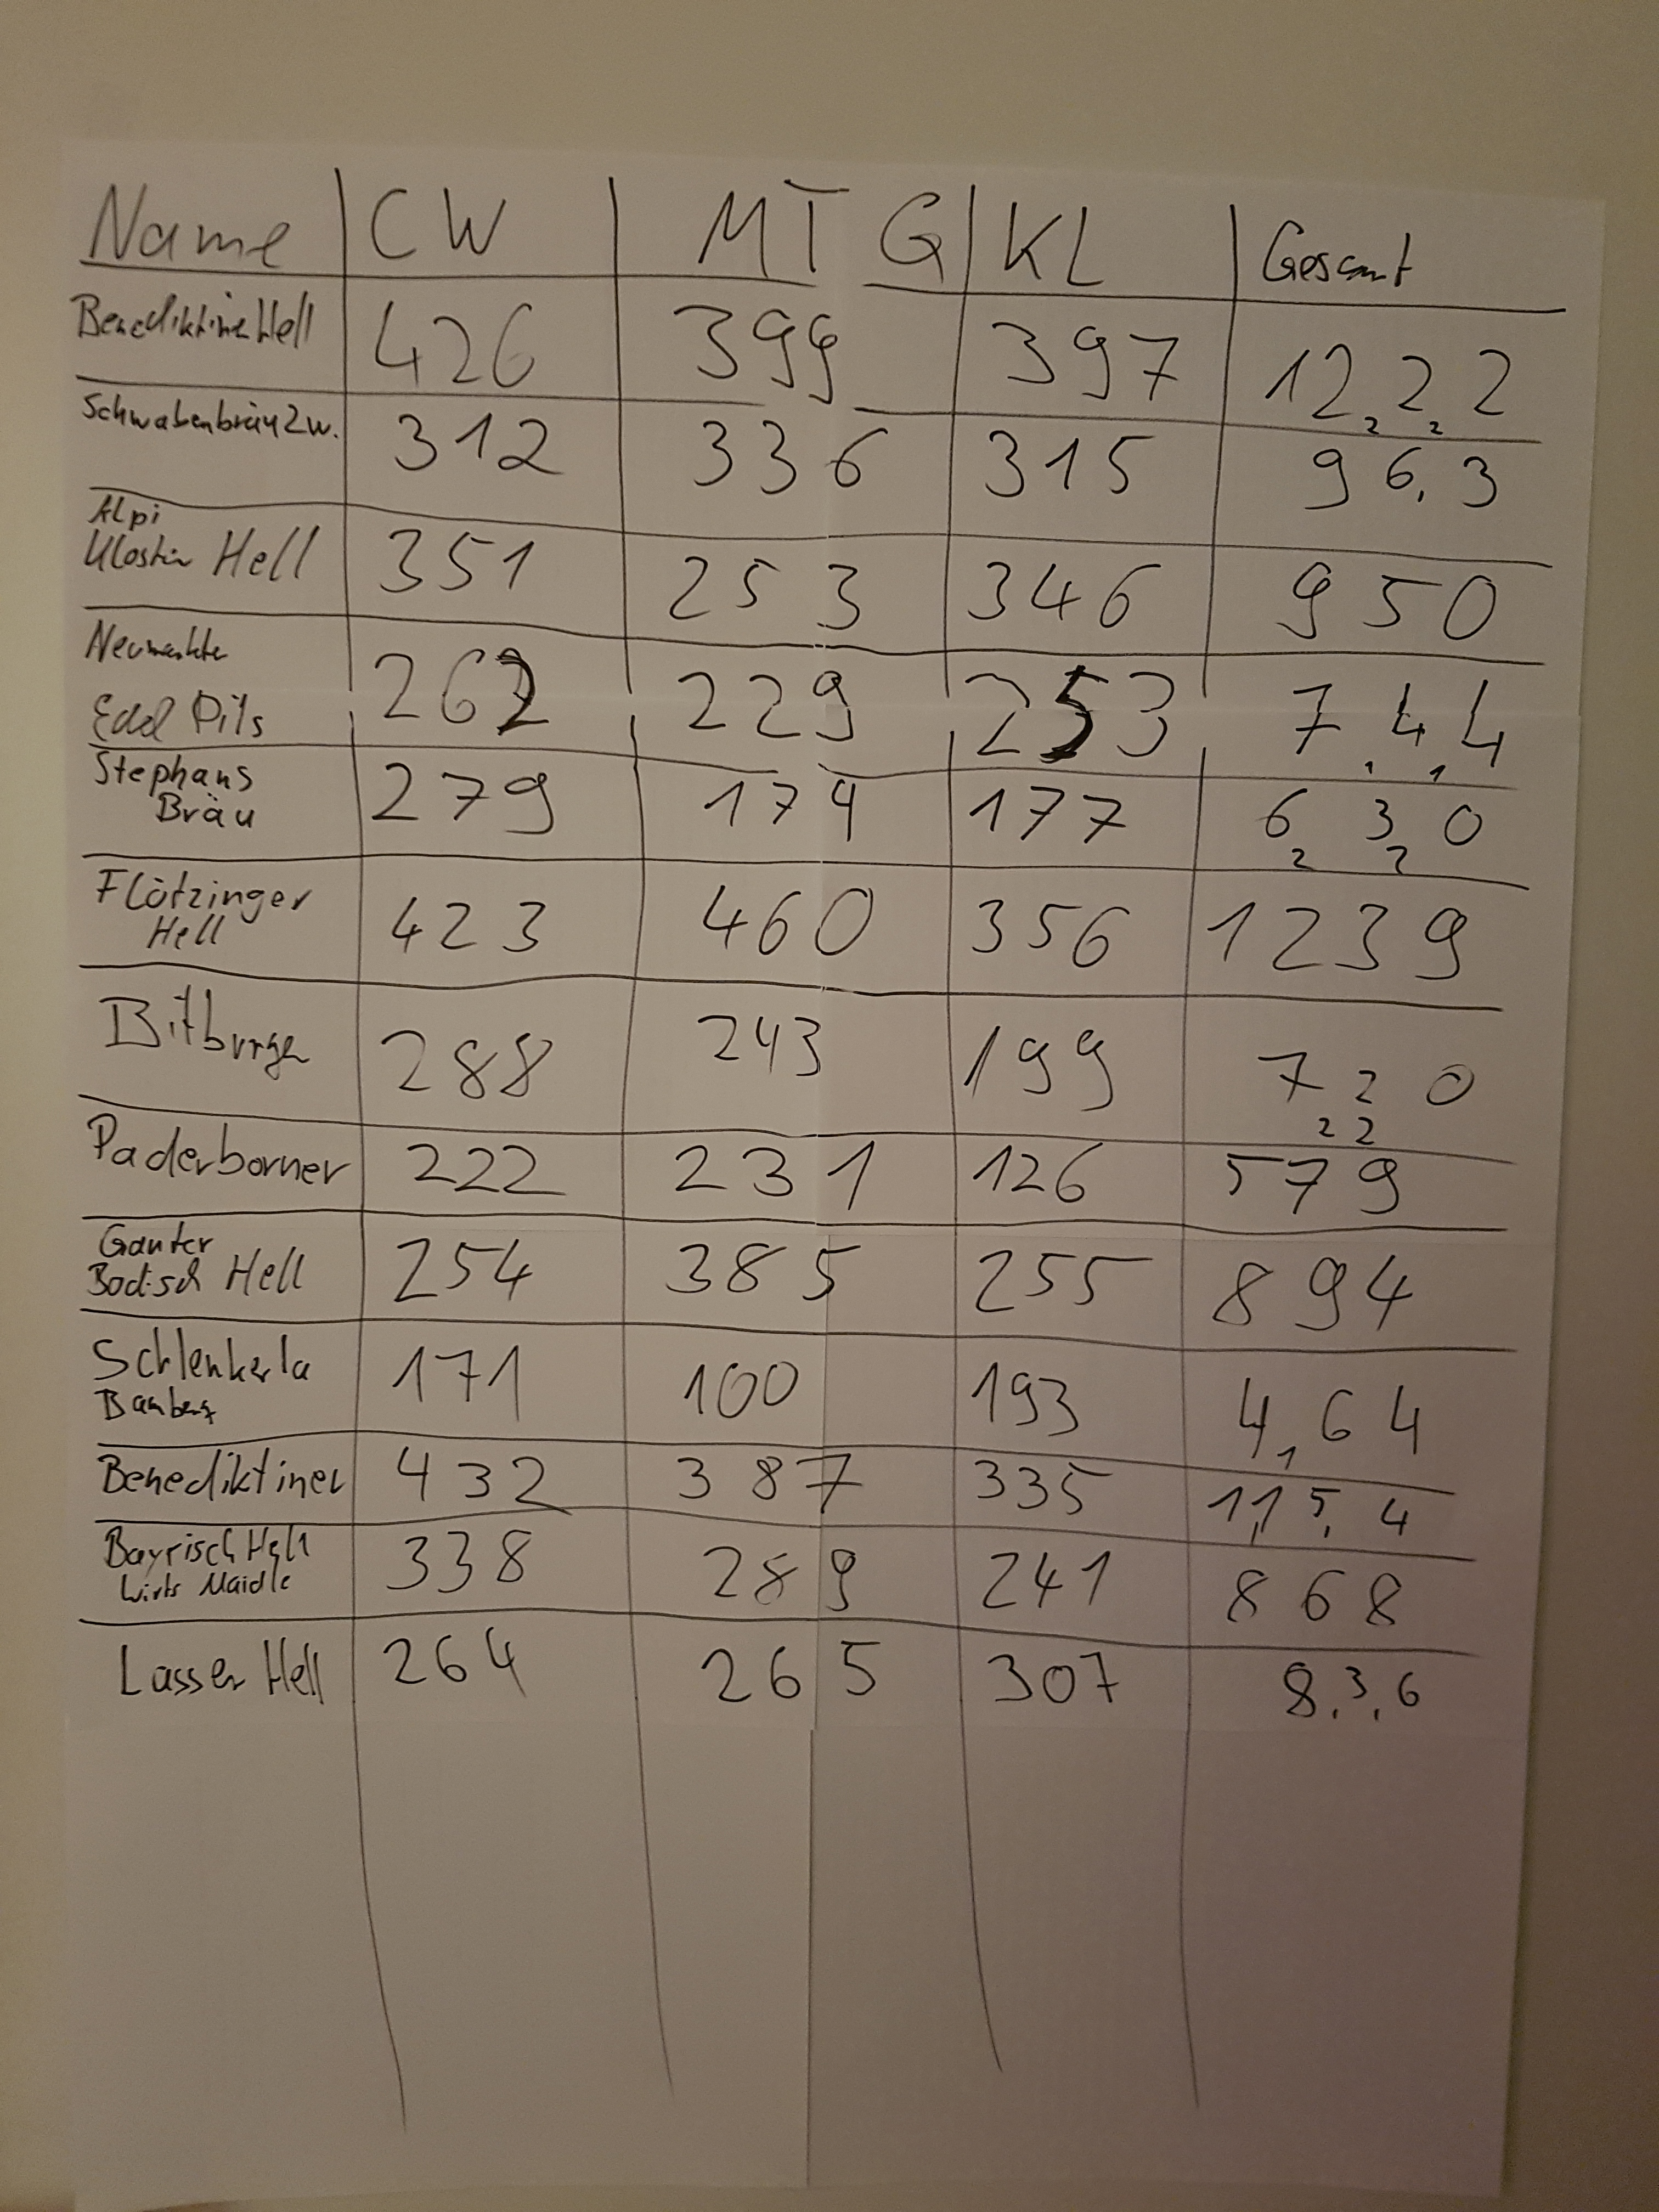 Name CW MTG KL Gesamt
Benediktiner Hell 426 399 397 1222
Schwabenbräu Zw. 312 336 315 963
Alpi
Kloster Hell 351 253 346 950
Neumarkter
Edel Pils 262 229 253 744
Stephans
Bräu 279 174 177 630
Flötzinger
Hell 423 460 356 1239
Bitburger 288 243 199 720
Paderborner 222 231 126 579
Ganter
Badisch Hell 254 385 255 894
Schlenkerla
Bamberg 171 100 193 464
Benediktiner 432 387 335 1154
Bayrisch Hell
Wirts Maidle 338 289 241 868
Lasser Hell 264 265 307 836